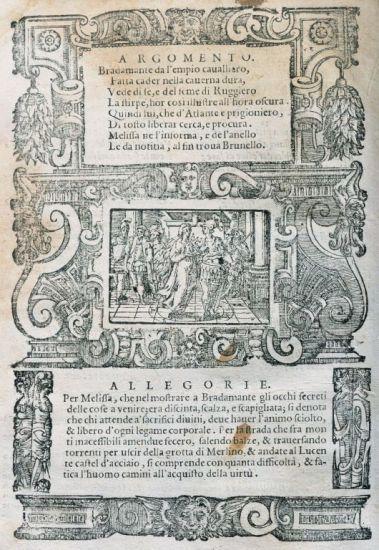 ARGOMENTO.
Bradamante da l'empio cauallero,
Fatta cader nella cauerna dura,
Vede di se, e del seme di Ruggiero
La stirpe, hor così illustre all'hora oscura.
Quindi lui, che d'Atlante è prigioniero,
Di tosto liberar cerca, e procura.
Melissa ne l'informa, e de l'anello
Le da notitia, al fin troua Brunello.
ALLEGORIE.
Per Melissa, che nel mostrare a Bradamante gli occhi secreti
delle cose a venire; era discinta, scalza, e scapigliata; si denota
che chi attende a' sacrifici diuini, deue hauer l'animo sciolto,
& libero d'ogni legame corporale. Per la strada che fra mon
ti inacessibili amendue fecero, salendo balze, & trauersando
torrenti per uscir della grotta di Merlino, & andate al Lucen
te castel d'acciaio, si comprende con quanta difficoltà, & fa
tica l'huomo camini all'acquisto della virtù.